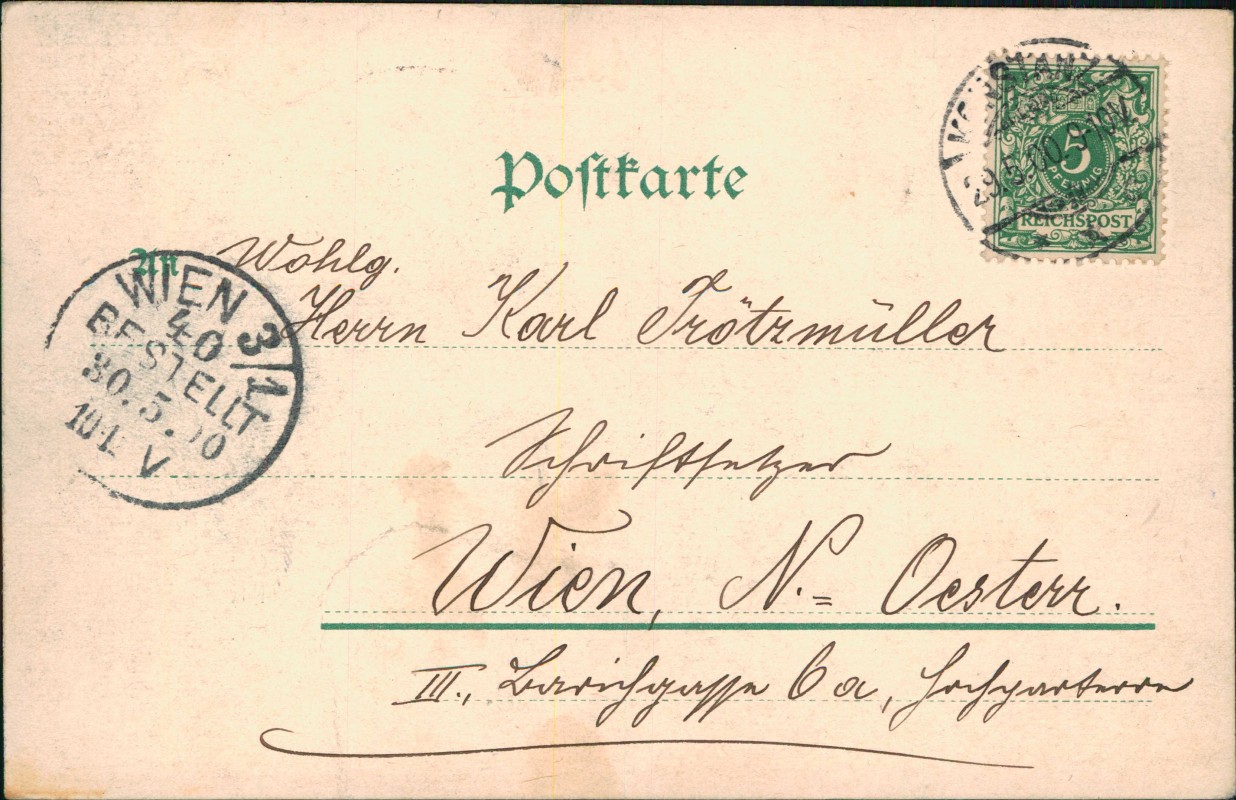 Postkarte
KONSTANZ
29.5.00. 9-10V.
5
PFENNIG
REICHSPOST
An
Wohlg.
Herrn Karl Trötzmüller
Schriftsetzer
Wien, N.= Oesterr.
III., Barichgasse 6a, Hochparterre
WIEN 3/1
40
BESTELLT
30.5.00
V